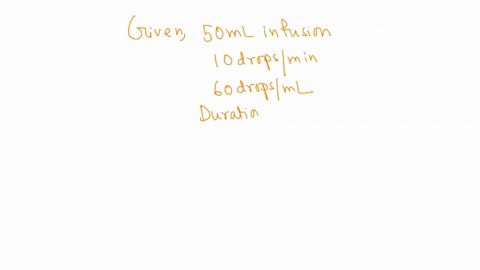 Given, 50mL infusion
10drops/min
60drops/mL
Duratio